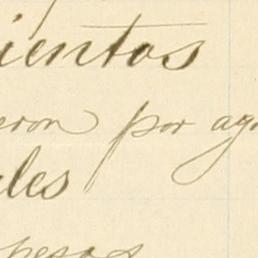 ientos
eron por ag
les
pesos